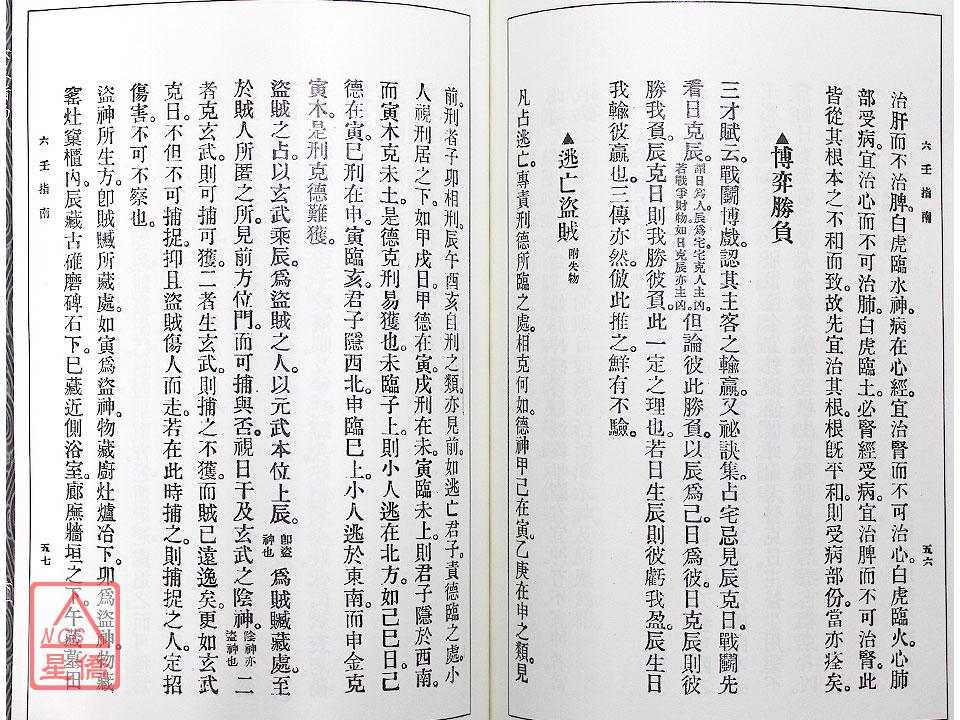 六壬指南
五六
治肝而不治脾。白虎臨水神。病在心經宜治腎而不可治心。白虎臨火。心肺
部受病。宜治心而不可治肺。白虎臨土。必腎經受病。宜治脾而不可治腎。此
皆從其根本之不和而致。故先宜治其根。根旣平和。則受病部份。當亦痊矣。
▲博弈勝負
三才賦云。戰鬭博戲。認其主客之輸贏。又祕訣集占宅忌見辰克日。戰鬭先
看日克辰。謂日爲人。辰爲宅。宅克人主凶。若戰爭財物。如日克辰亦主凶。但論彼此勝負。以辰爲己。日爲彼。日克辰則彼
勝我負。辰克日則我勝彼負。此一定之理也。若日生辰則彼虧我盈。辰生日
我輸彼贏也。三傳亦然。倣此推之。鮮有不驗。
▲逃亡盜賊 附失物
凡占逃亡。專責刑德所臨之處。相克何如。德神甲己在寅。乙庚在申之類。見
前。刑者子卯相刑。辰午酉亥自刑之類。亦見前。如逃亡君子。責德臨之處。小
人視刑居之下。如甲戌日。甲德在寅。戌刑在未。寅臨未上。則君子隱於西南。
而寅木克未土。是德克刑易獲也。未臨子上。則小人逃在北方。如己巳日。己
德在寅。巳刑在申。寅臨亥。君子隱西北。申臨巳上。小人逃於東南。而申金克
寅木。是刑克德難獲。
盜賊之占。以玄武乘辰。爲盜賊之人。以元武本位上辰。卽盜神也 爲賊贓藏處。至
於賊人所匿之所。見前方位門。而可捕與否。視日干及玄武之陰神。陰神亦盜神也 二
者克玄武。則可捕可獲。二者生玄武。則捕之不獲。而賊已遠逸矣。更如玄武
克日。不但不可捕捉。抑且盜賊傷人而走。若在此時捕之。則捕捉之人。定招
傷害。不可不察也。
盜神所生方。卽賊贓所藏處。如寅爲盜神。物藏廚灶爐冶下。卯爲盜神。物藏
窰灶窠櫃內。辰藏古碓磨碑石下。巳藏近側浴室廊廡牆垣之下。午藏墓田
六壬指南
五七
NCC
星僑